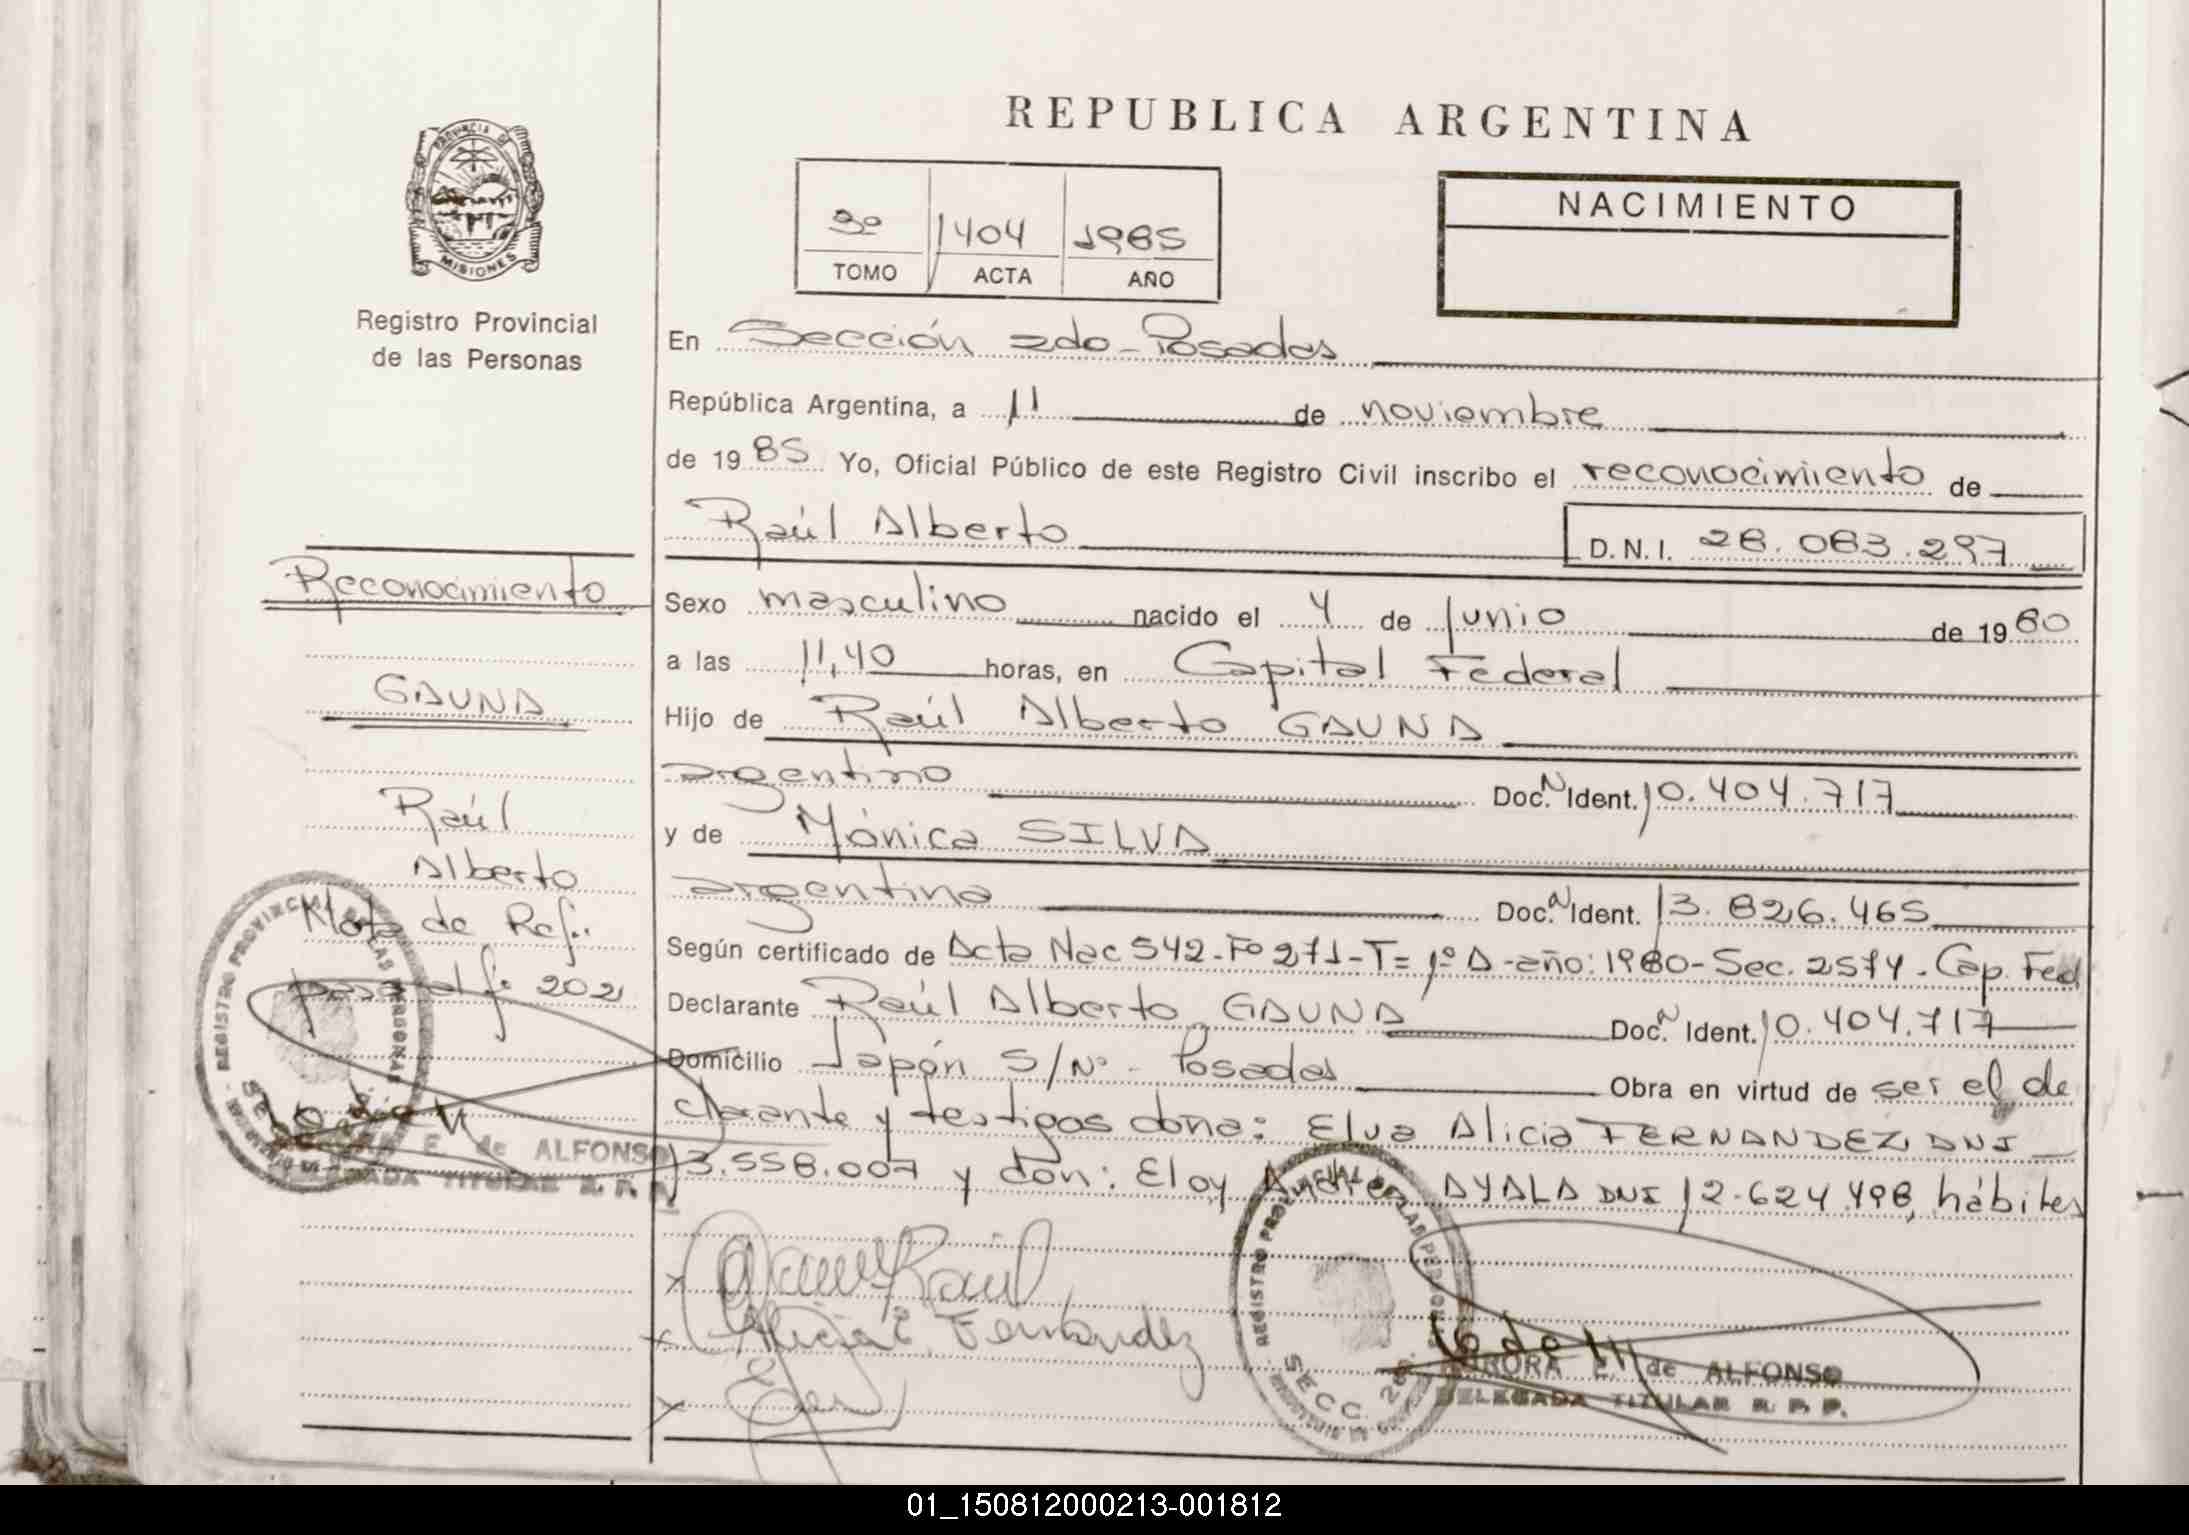 REPUBLICA ARGENTINA
PROVINCIA DE
MISIONES
Registro Provincial
de las Personas
3º 1404 1985
TOMO ACTA AÑO
NACIMIENTO
En Sección 2do - Posadas
República Argentina, a 11 de noviembre
de 1985 Yo, Oficial Público de este Registro Civil inscribo el reconocimiento de
Raúl Alberto
D.N.I. 28.083.297
Sexo masculino nacido el 4 de Junio de 1980
a las 11,40 horas, en Capital Federal
Hijo de Raúl Alberto GAUNA
argentino Doc. N Ident. 10.404.717
y de Mónica SILVA
argentina Doc. N Ident. 13.826.465
Según certificado de Acta Nac 542 - Fº 271 - T= 1º A - año: 1980 - Sec. 2514 - Cap. Fed
Declarante Raúl Alberto GAUNA Doc. N Ident. 10.404.717
Domicilio Japón S/Nº - Posadas Obra en virtud de ser el de
clarante y testigos doña: Elva Alicia FERNANDEZ, DNI
13.558.007 y don: Eloy AYALA DNI 12.624.498, hábiles
Reconocimiento
GAUNA
Raúl
Alberto
Nota de Ref.:
pasa al fº 202
REGISTRO PROVINCIAL DE LAS PERSONAS
E. de ALFONSO
DELEGADA TITULAR R. P. P.
Raúl
Alicia E. Fernández
REGISTRO PROVINCIAL DE LAS PERSONAS
SECC. 2da.
AURORA E. de ALFONSO
DELEGADA TITULAR R. P. P.
01_150812000213-001812